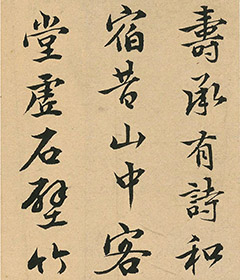 壽承有詩和
宿昔山中客
堂虛石壁竹